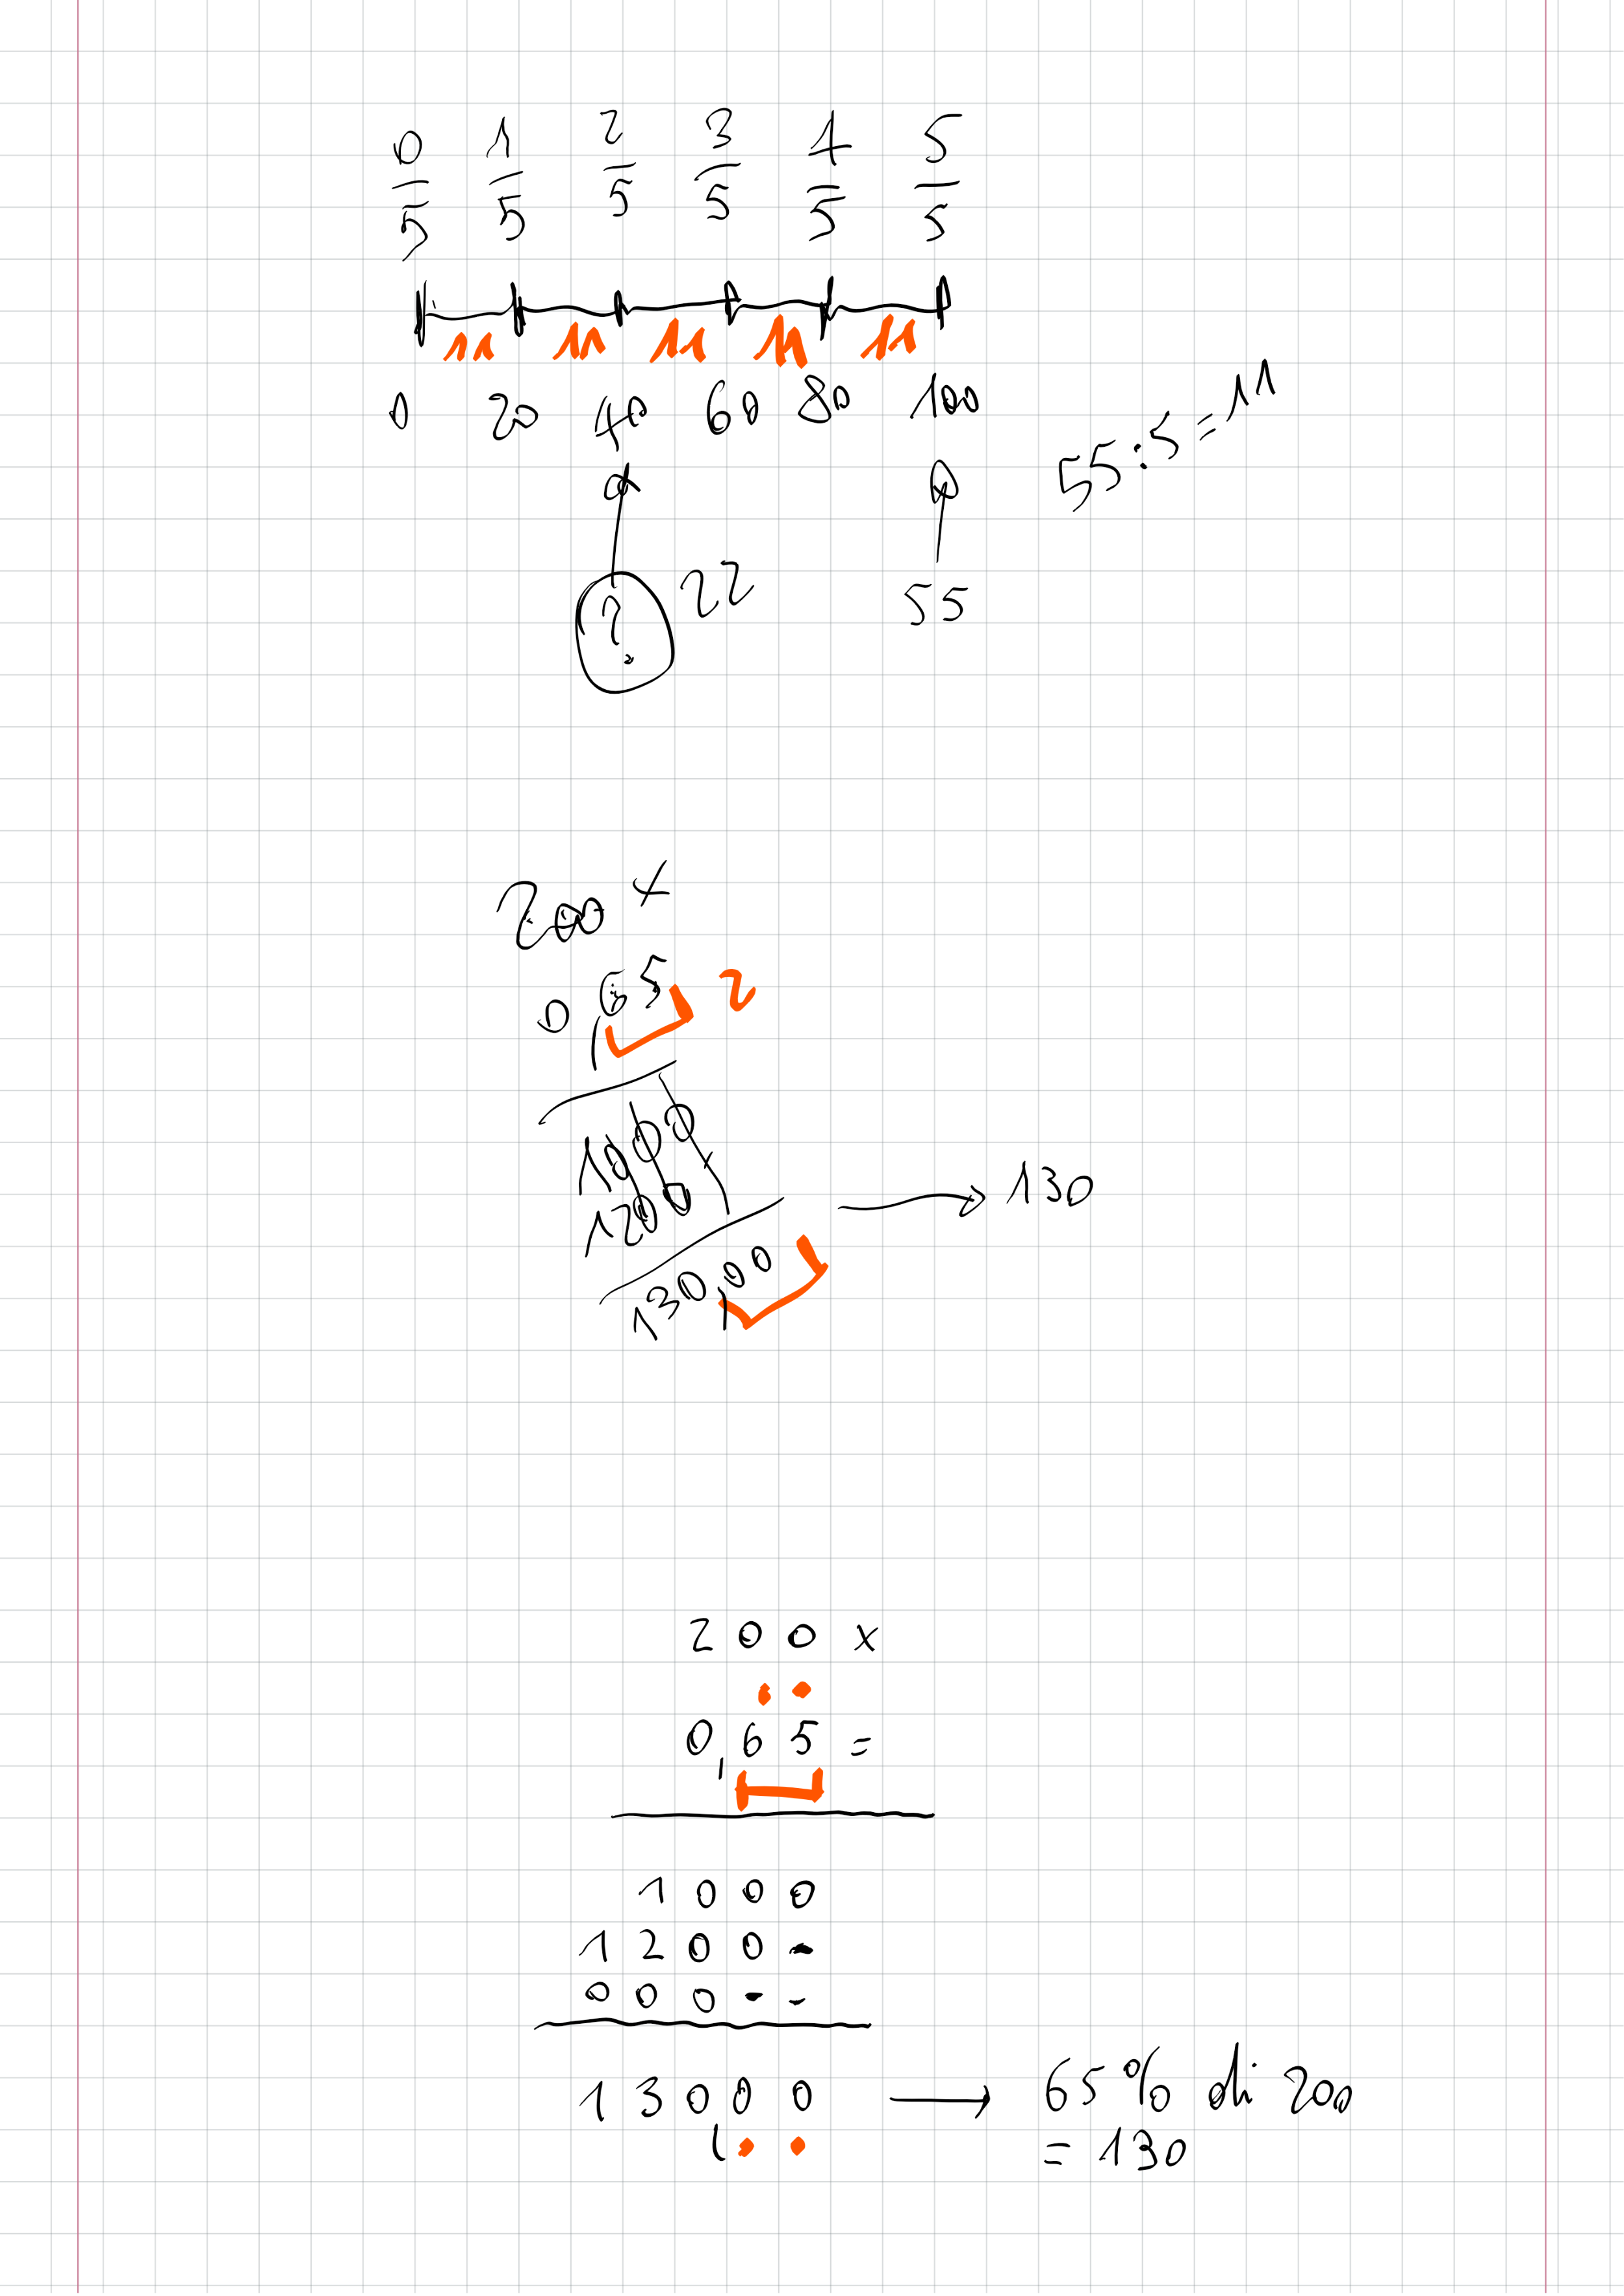 0/5 1/5 2/5 3/5 4/5 5/5
11 11 11 11 11
0 20 40 60 80 100
55:5=11
? 22 55
200 x
0,65 2
1000
1200
130,00 → 130
200 x
0,65 =
1000
1200-
000--
13000 → 65% di 200
, = 130